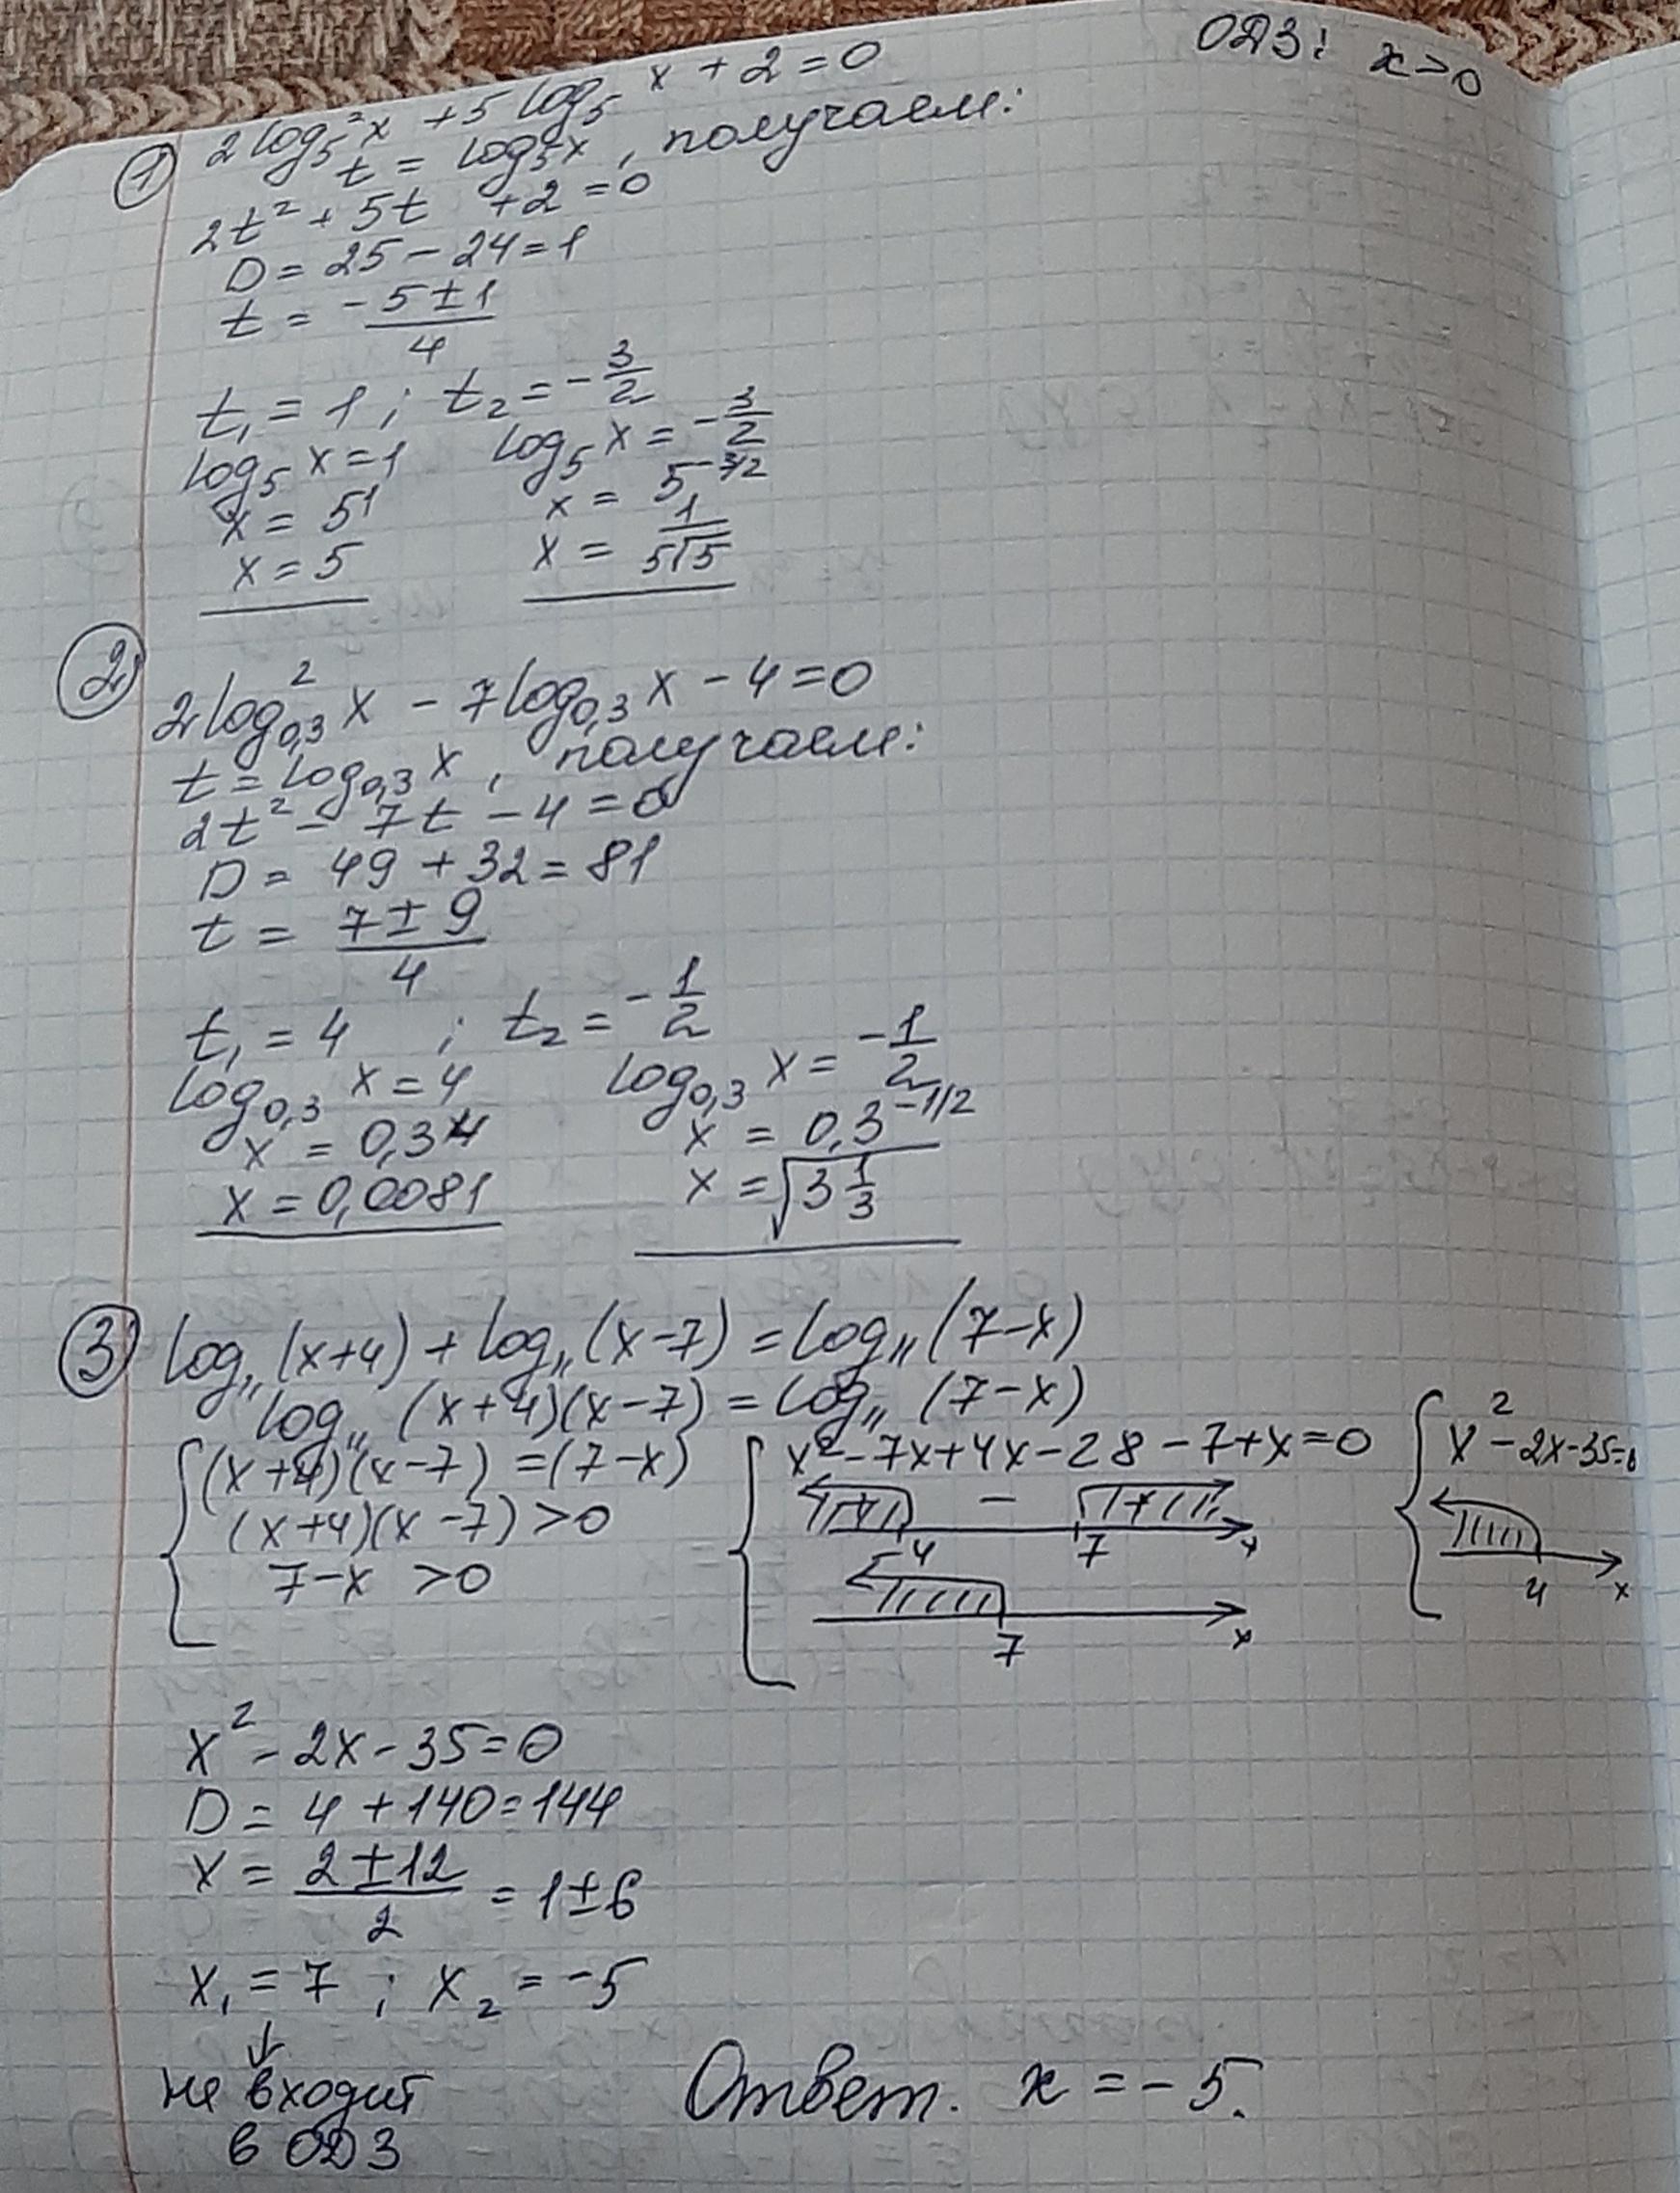 ОДЗ: x > 0
① 2 log₅²x + 5 log₅ x + 2 = 0
t = log₅x, получаем:
2t² + 5t + 2 = 0
D = 25 - 24 = 1
t = (-5 ± 1)/4
t₁ = 1; t₂ = -3/2
log₅ x = 1 log₅ x = -3/2
x = 5¹ x = 5^(-3/2)
x = 5 x = 1/(5√5)
② 2 log₀,₃² x - 7 log₀,₃ x - 4 = 0
t = log₀,₃ x, получаем:
2t² - 7t - 4 = 0
D = 49 + 32 = 81
t = (7 ± 9)/4
t₁ = 4 ; t₂ = -1/2
log₀,₃ x = 4 log₀,₃ x = -1/2
x = 0,3⁴ x = 0,3^(-1/2)
x = 0,0081 x = √(3 1/3)
③ log₁₁(x+4) + log₁₁(x-7) = log₁₁(7-x)
log₁₁ (x+4)(x-7) = log₁₁ (7-x)
(x+4)(x-7) = (7-x) x² - 7x + 4x - 28 - 7 + x = 0 x² - 2x - 35 = 0
(x+4)(x-7) > 0 + - +
-4 7 x 4 x
7-x > 0
7 x
x² - 2x - 35 = 0
D = 4 + 140 = 144
x = (2 ± 12)/2 = 1 ± 6
x₁ = 7 ; x₂ = -5
↓
не входит
в ОДЗ
Ответ. x = -5.